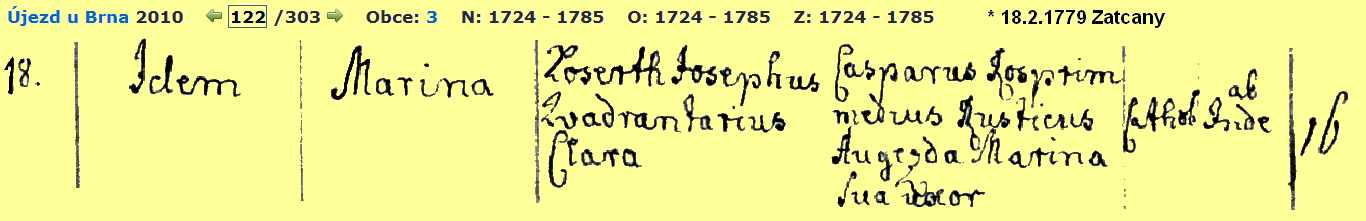 Újezd u Brna 2010 122 /303 Obce: 3 N: 1724 - 1785 O: 1724 - 1785 Z: 1724 - 1785 * 18.2.1779 Zatcany
18. Idem Marina Loserth Josephus Casparus Rosprim
ab
Quadrantarius medius Rusticus Cathol Inde 16
Clara Augezda Marina
Sua Uxor